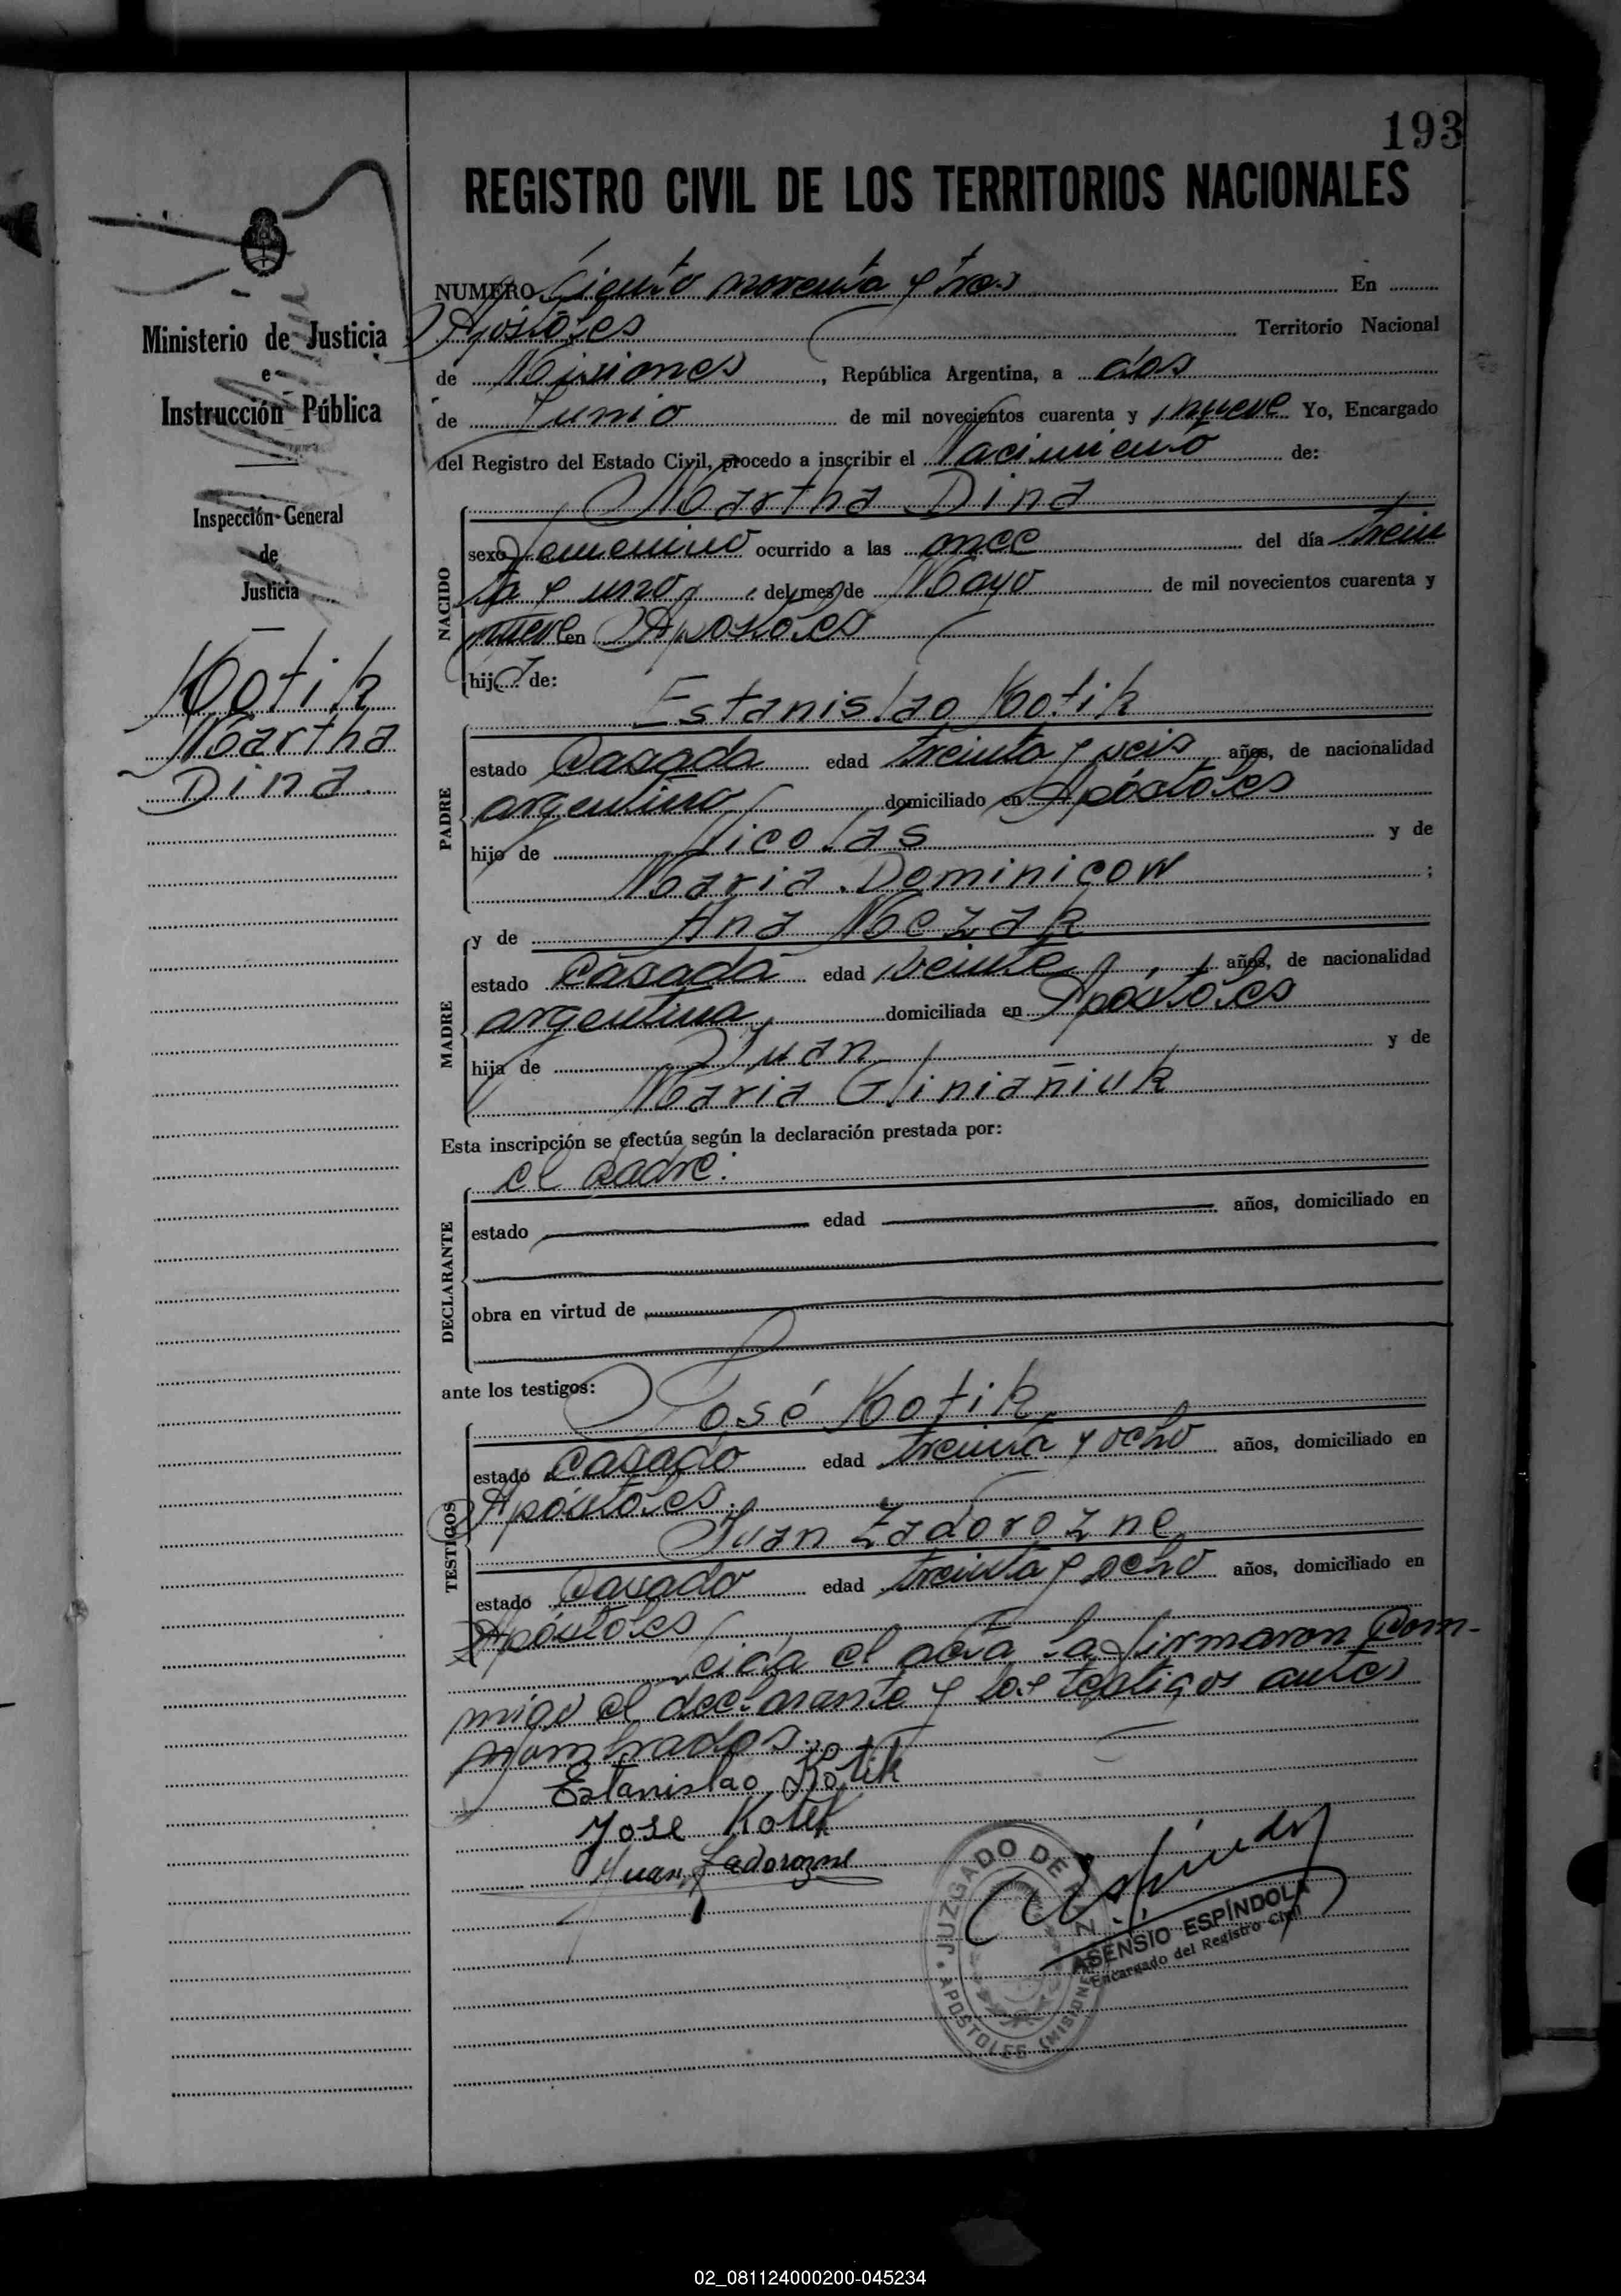 193
REGISTRO CIVIL DE LOS TERRITORIOS NACIONALES
Ministerio de Justicia
e
Instrucción Pública
Inspección General
de
Justicia
Kotik
Martha
Dina.
NUMERO Ciento noventa y tres En
Apóstoles Territorio Nacional
de Misiones, República Argentina, a dos
de Junio de mil novecientos cuarenta y nueve Yo, Encargado
del Registro del Estado Civil, procedo a inscribir el Nacimiento de:
Martha Dina
NACIDO
sexo femenino ocurrido a las once del día trein
ta y uno, del mes de Mayo de mil novecientos cuarenta y
nueve en Apóstoles
hija de:
Estanislao Kotik
PADRE
estado Casado edad treinta y seis años, de nacionalidad
argentino domiciliado en Apóstoles
hijo de Nicolás y de
Maria Dominicow ;
y de Ana Mczak
MADRE
estado Casada edad veinte años, de nacionalidad
argentina domiciliada en Apóstoles
hija de Juan y de
Maria Gliniañiuk
Esta inscripción se efectúa según la declaración prestada por:
el padre.
DECLARANTE
estado edad años, domiciliado en
obra en virtud de
ante los testigos:
José Kotik
TESTIGOS
estado casado edad treinta y ocho años, domiciliado en
Apóstoles.
Juan Zadorozne
estado Casado edad treinta y ocho años, domiciliado en
Apóstoles
Leida el acta la firmaron Con-
migo el declarante y los testigos antes
nombrados.
Estanislao Kotik
Jose Kotik
Juan Zadorozne
JUZGADO DE PAZ
APOSTOLES (MISIONES)
ASENSIO ESPÍNDOLA
Encargado del Registro Civil
02_081124000200-045234